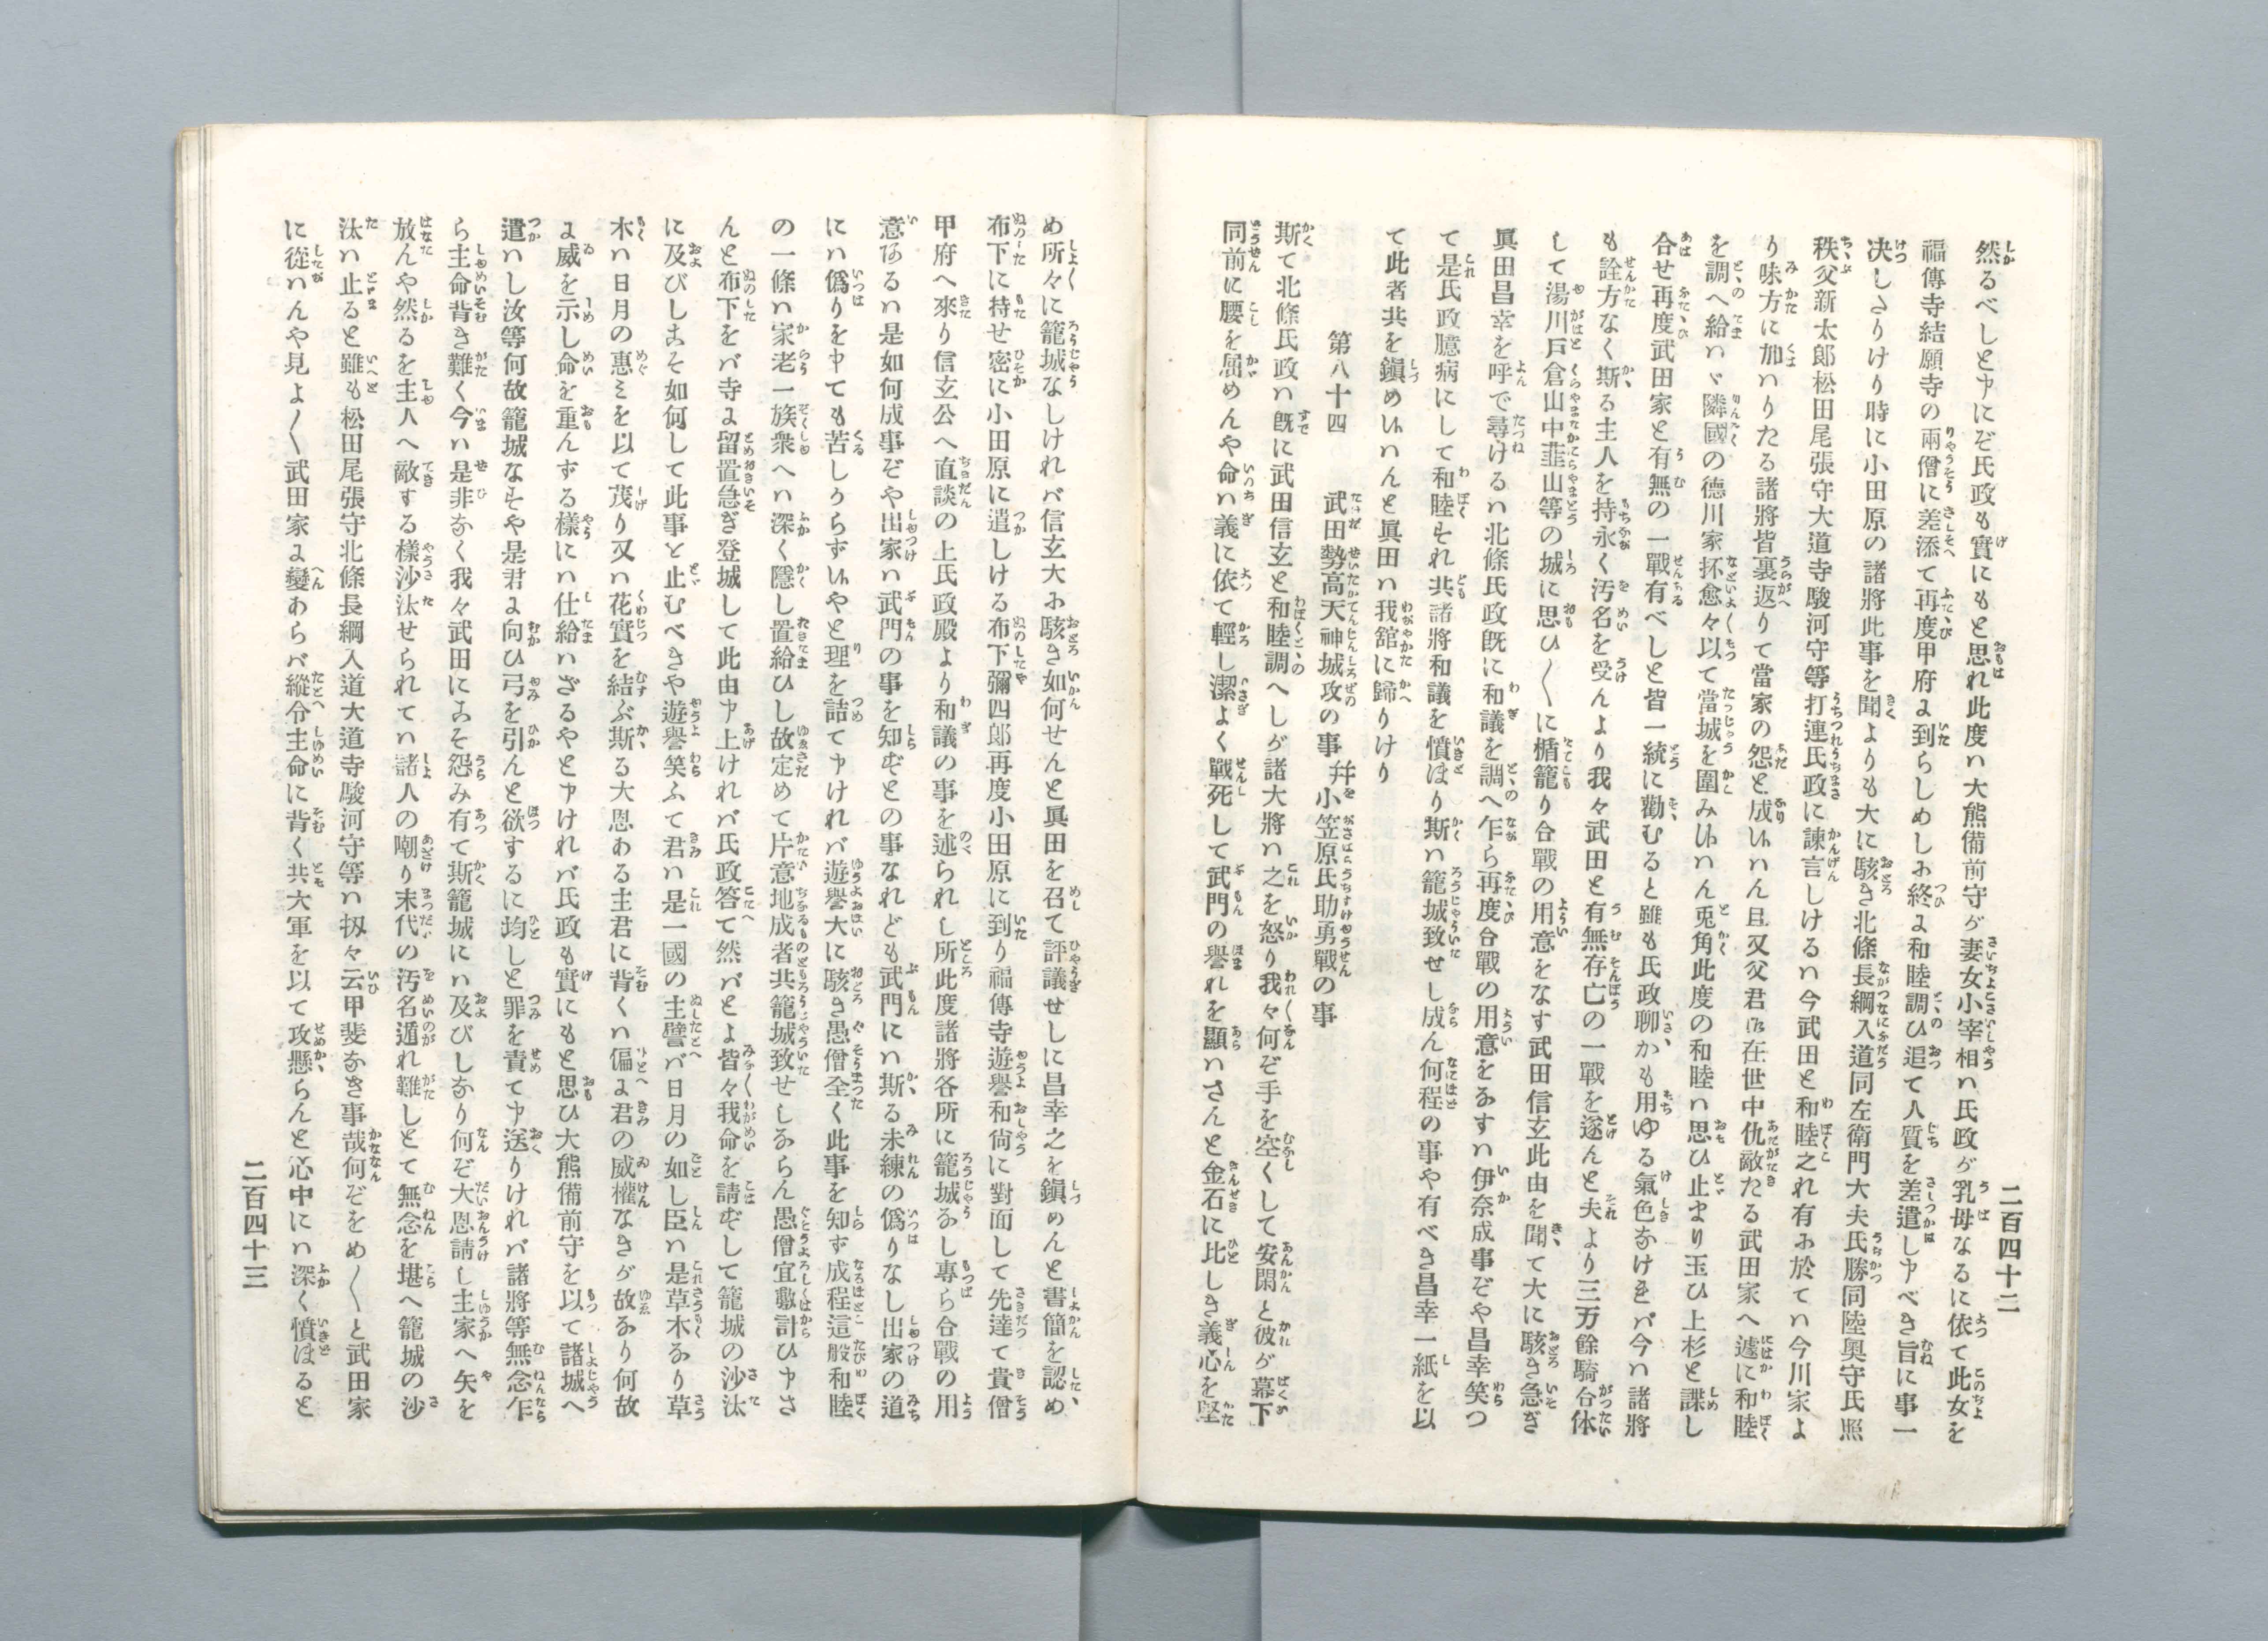 二百四十二
然るべしと申にぞ氏政も實にもと思れ此度ハ大熊備前守が妻女小宰相ハ氏政が乳母なるに依て此女を
福傳寺結願寺の兩僧に差添て再度甲府に到らしめしお終に和睦調ひ追て人質を差遣し申べき旨に事一
决しさりけり時に小田原の諸將此事を聞よりも大に駭き北條長綱入道同左衛門大夫氏勝同陸奥守氏照
秩父新太郎松田尾張守大道寺駿河守等打連氏政に諫言しけるハ今武田と和睦之れ有お於てハ今川家よ
り味方に加ハりたる諸將皆裏返りて當家の怨と成いハん且又父君御在世中仇敵たる武田家へ遽に和睦
を調へ給ハヾ隣國の德川家抔愈々以て當城を圍みいハん兎角此度の和睦ハ思ひ止まり玉ひ上杉と諜し
合せ再度武田家と有無の一戰有べしと皆一統に勸むると雖も氏政聊かも用ゆる氣色なけれバ今ハ諸將
も詮方なく斯る主人を持永く汚名を受んより我々武田と有無存亡の一戰を遂んと夫より三万餘騎合体
して湯川戸倉山中韮山等の城に思ひ〱に楯籠り合戰の用意をなす武田信玄此由を聞て大に駭き急ぎ
眞田昌幸を呼で尋けるハ北條氏政既に和議を調へ乍ら再度合戰の用意をなすハ伊奈成事ぞや昌幸笑つ
て是氏政臆病にして和睦せれ共諸將和議を憤ほり斯ハ籠城致せし成ん何程の事や有べき昌幸一紙を以
て此者共を鎭めいハんと眞田ハ我舘に歸りけり
第八十四　武田勢高天神城攻の事 幷小笠原氏助勇戰の事
斯て北條氏政ハ既に武田信玄と和睦調へしが諸大將ハ之を怒り我々何ぞ手を空くして安閑と彼が幕下
同前に腰を屈めんや命ハ義に依て輕し潔よく戰死して武門の譽れを顯ハさんと金石に比しき義心を堅
め所々に籠城なしけれバ信玄大お駭き如何せんと眞田を召て評議せしに昌幸之を鎭めんと書簡を認め
布下に持せ密に小田原に遣しける布下彌四郎再度小田原に到り福傳寺遊譽和尚に對面して先達て貴僧
甲府へ來り信玄公へ直談の上氏政殿より和議の事を述られし所此度諸將各所に籠城なし專ら合戰の用
意なるハ是如何成事ぞや出家ハ武門の事を知ずとの事なれども武門にハ斯る未練の僞りなし出家の道
にハ僞りを申ても苦しからずいやと理を詰て申けれバ遊譽大に駭き愚僧全く此事を知ず成程這般和睦
の一條ハ家老一族衆へハ深く隱し置給ひし故定めて片意地成者共籠城致せしならん愚僧宜敷計ひ申さ
んと布下をバ寺に留置急ぎ登城して此由申上けれバ氏政答て然バとよ皆々我命を請ずして籠城の沙汰
に及びしこそ如何して此事を止むべきや遊譽笑ふて君ハ是一國の主譬バ日月の如し臣ハ是草木なり草
木ハ日月の惠ミを以て茂り又ハ花實を結ぶ斯る大恩ある主君に背くハ偏に君の威權なきが故なり何故
に威を示し命を重んずる樣にハ仕給ハざるやと申けれバ氏政も實にもと思ひ大熊備前守を以て諸城へ
遣ハし汝等何故籠城なすや是君に向ひ弓を引んと欲するに均しと罪を責て申送りけれバ諸將等無念乍
ら主命背き難く今ハ是非なく我々武田にこそ怨み有て斯籠城にハ及びしなり何ぞ大恩請し主家へ矢を
放んや然るを主人へ敵する樣沙汰せられてハ諸人の嘲り末代の汚名遁れ難しとて無念を堪へ籠城の沙
汰ハ止ると雖も松田尾張守北條長綱入道大道寺駿河守等ハ扨々云甲斐なき事哉何ぞをめ〱と武田家
に從ハんや見よ〱武田家に變あらバ縱令主命に背く共大軍を以て攻懸らんと心中にハ深く憤ほると
二百四十三